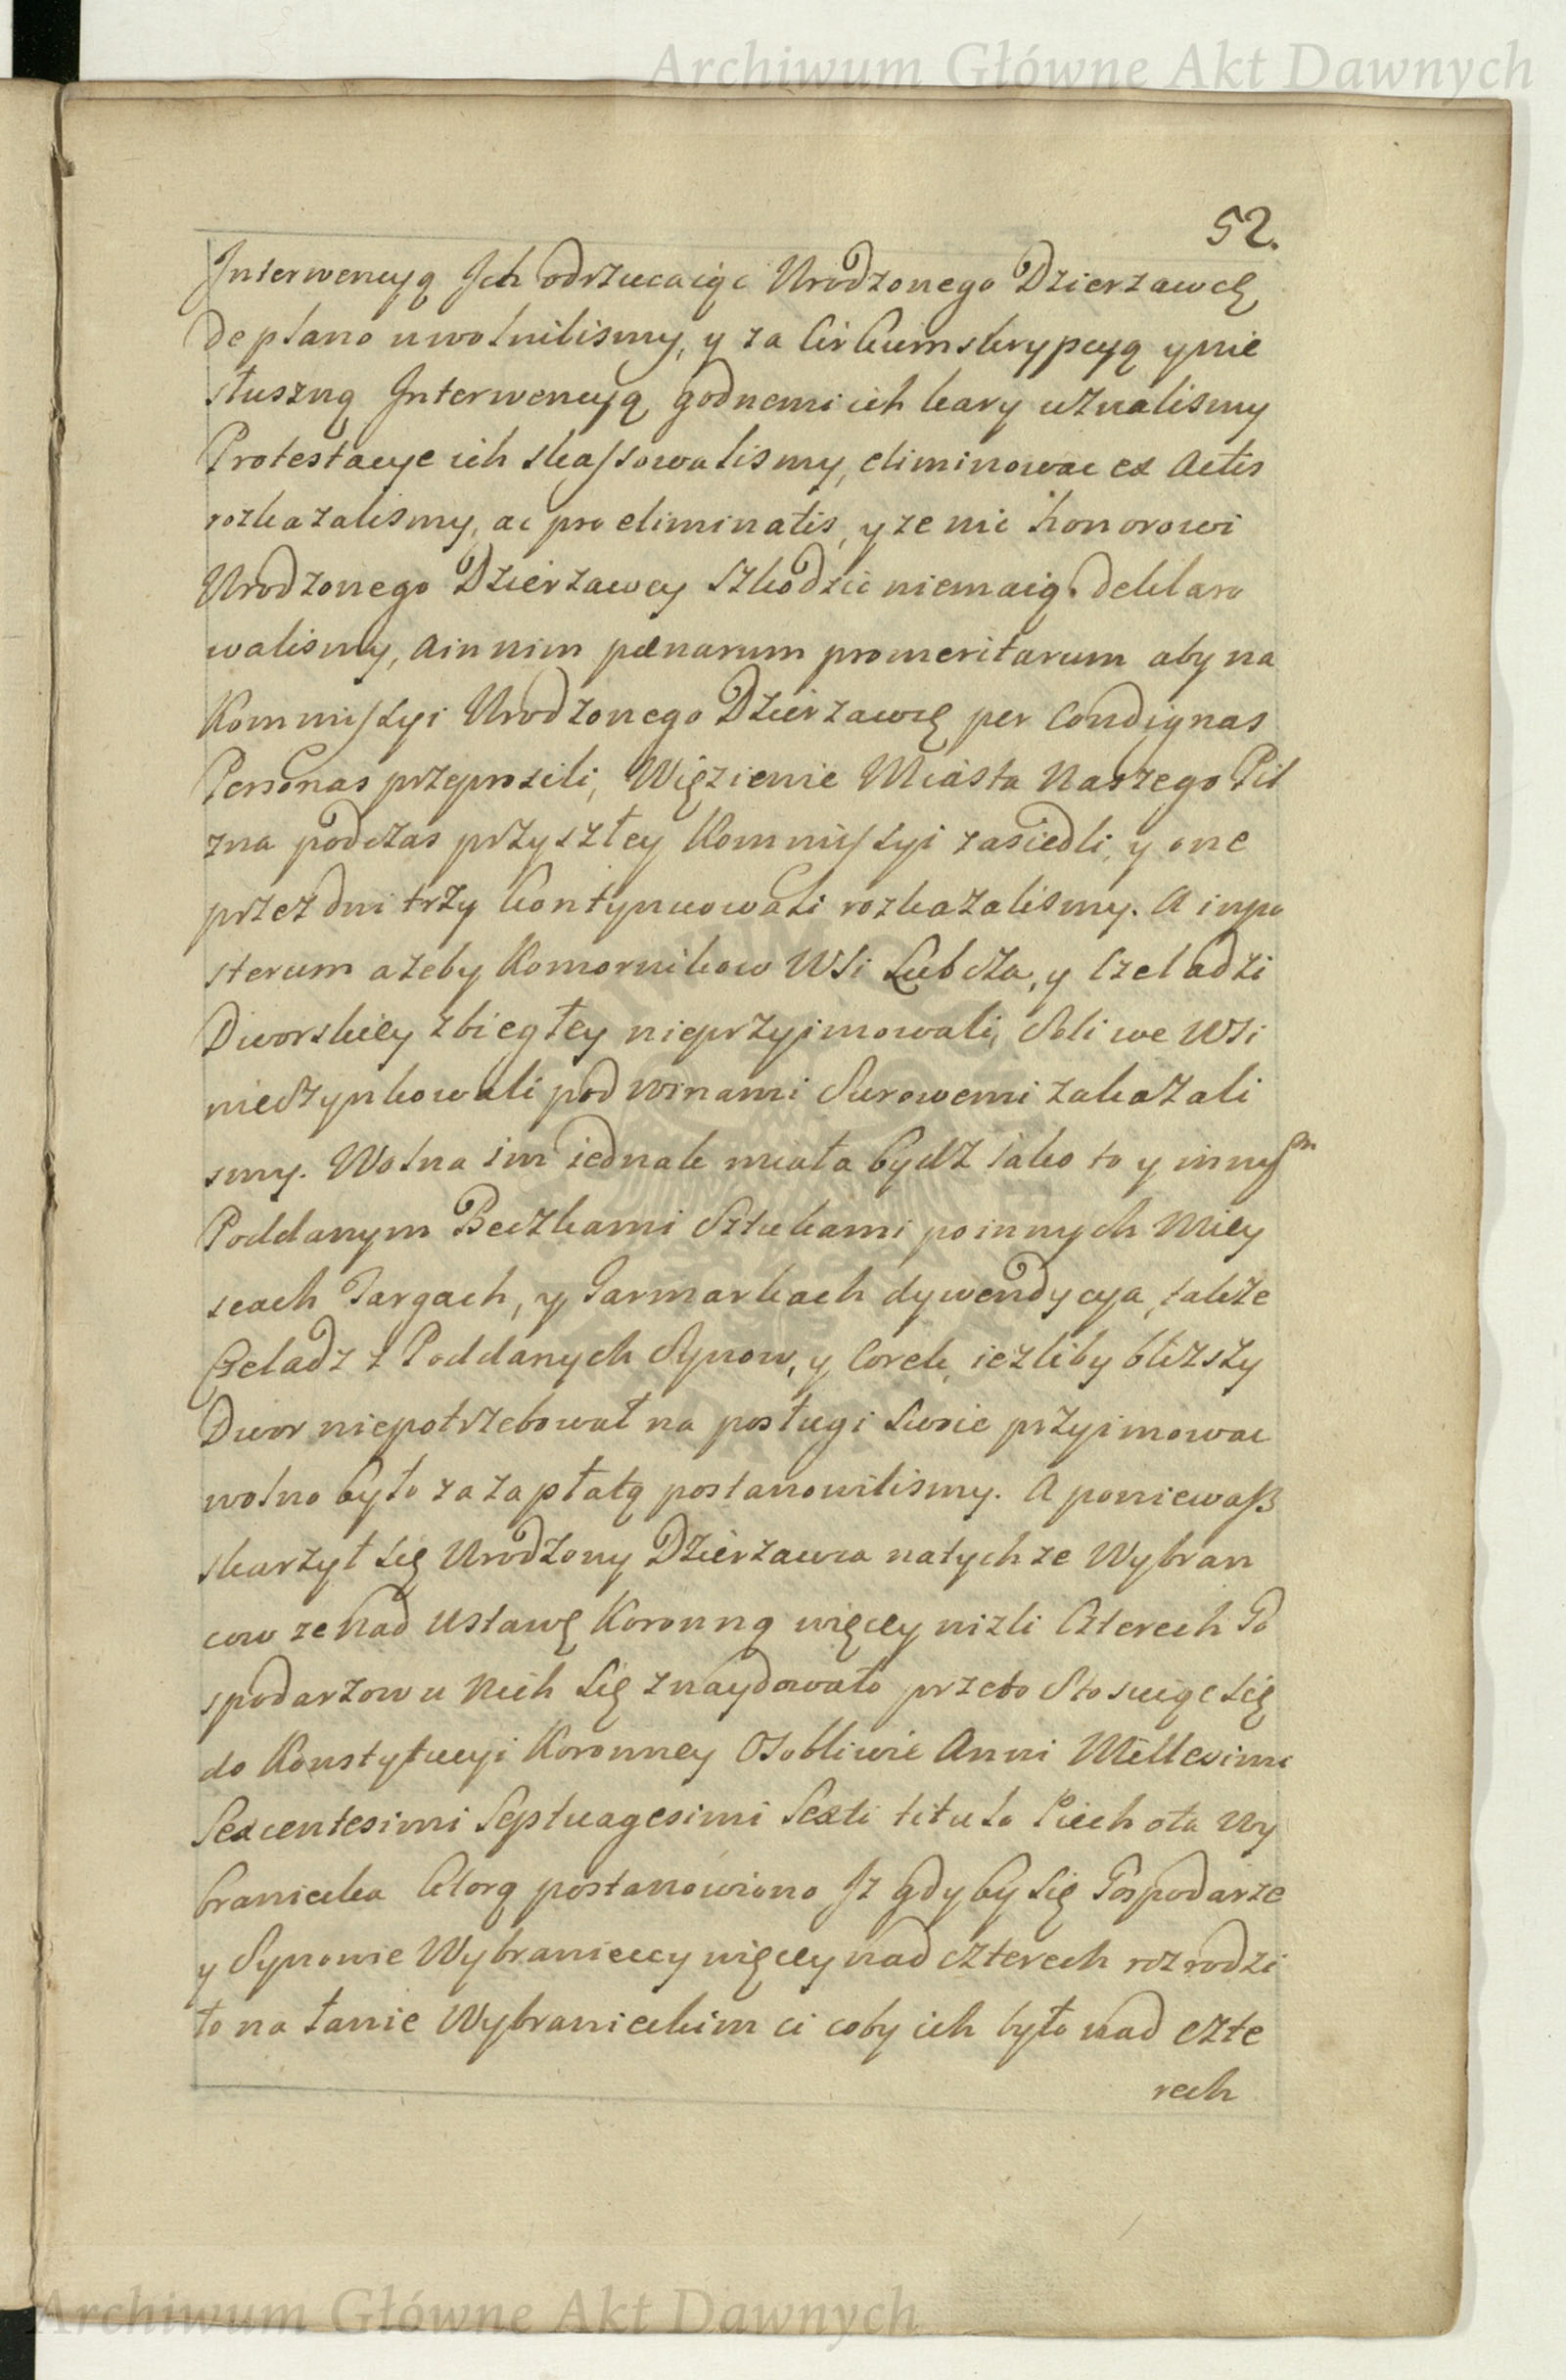 Archiwum Główne Akt Dawnych
52.
Interwencyą Ich odrzucaiąc Urodzonego Dzierzawcę
de plano uwolnilismy, y za Cirkumskrypcyą y nie
słuszną Interwencyą godnemi ich kary uznalismy
Protestacye ich skassowalismy, eliminowac ex Actis
rozkazalismy, ac pro eliminatis, y ze nic honorowi
Urodzonego Dzierzawcy Szkodzić niemaią. deklaro
walismy, a in nim pœnarum promeritarum aby na
Kommissyi Urodzonego Dzierzawcę per Condignas
Personas przeprosili, Więzienie Miasta Naszego Pil
zna podczas przyszłey Kommissyi zasiedli, y one
przez dni trzy kontynuowali rozkazalismy. A inpo
sterum azeby Komornikow Wsi Lubcza, y Czeladzi
Dworskiey zbiegłey nieprzyimowali, Soli we Wsi
nieszynkowali pod winami Surowemi zakazali
smy. Wolna im iednak miała bydz iako to y innym
Poddanym Beczkami Sztukami po innych Miey
scach Targach, y Jarmarkach dywendycya, także
Czeladz z Poddanych Synow, y Corek, iezliby blizszy
Dwor niepotrzebował na posługi Swoie przyimowac
wolno było za zapłatą postanowilismy. A poniewaß
skarzył się Urodzony Dzierzawca natychze Wybran
cow ze nad Ustawę Koronną więcey nizli Czterech Go
spodarzow u Nich się znaydowało przeto Stosuiąc się
do Konstytucyi Koronney Osobliwie Anni Millesimi
Sexcentesimi Septuagesimi Sexti titulo Piechota Wy
braniecka ktorą postanowiono Iz gdyby się Gospodarze
y Synowie Wybranieccy więcey nad czterech rozrodzi
ło na łanie Wybranieckim ci coby ich było nad czte
rech
Archiwum Główne Akt Dawnych